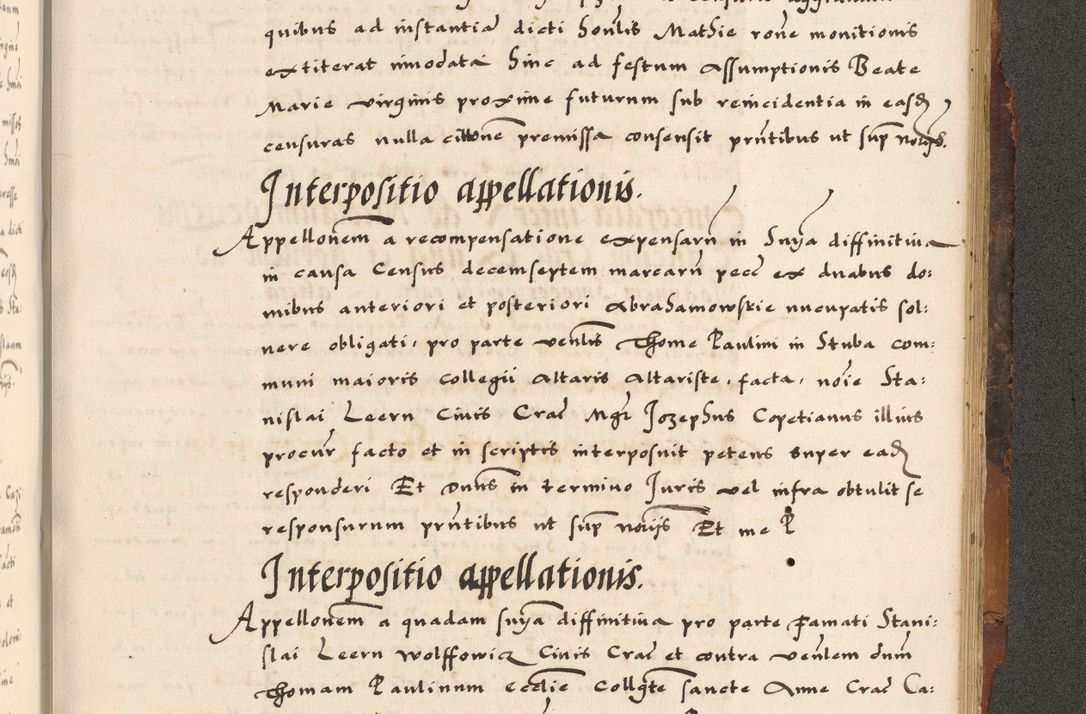 quibus ad instantiā dicti honlis Mathie rone monitionis
extiterat inodata hinc ad festum Assumptionis Beate
Marie virginis proxime futurum sub reincidentia in easd
censuras nulla citione premissa consensit pñtibus ut sup notys.
Interpositio appellationis.
Appellonem a recompensatione expensarū in Snÿa diffinitiua
in causa Census decemseptem marcarū pecc ex duabus do:
mibus anteriori et posteriori Abrahamowskie nucupatis sol:
uere obligati, pro parte venlis Thome Paulini in Stuba com:
muni maioris Collegii Altaris Altariste, facta, noie Sta:
nislai Leern Ciuis Crac Mgr Jozephus Copetianus illius
procur facto et in scriptis interposuit petens super ead
responderi Et Dnus in termino Juris vel infra obtulit se
responsurum pñtibus ut sup notÿs Et me P
Interpositio appellationis.
Appellonem a quadam snÿa diffinitiua pro parte Famati Stani:
slai Leern Wolffowicz Ciuis Crac et contra venlem dnm
Thomam Paulinum ecclie Collgte sancte Anne Crac Ca: